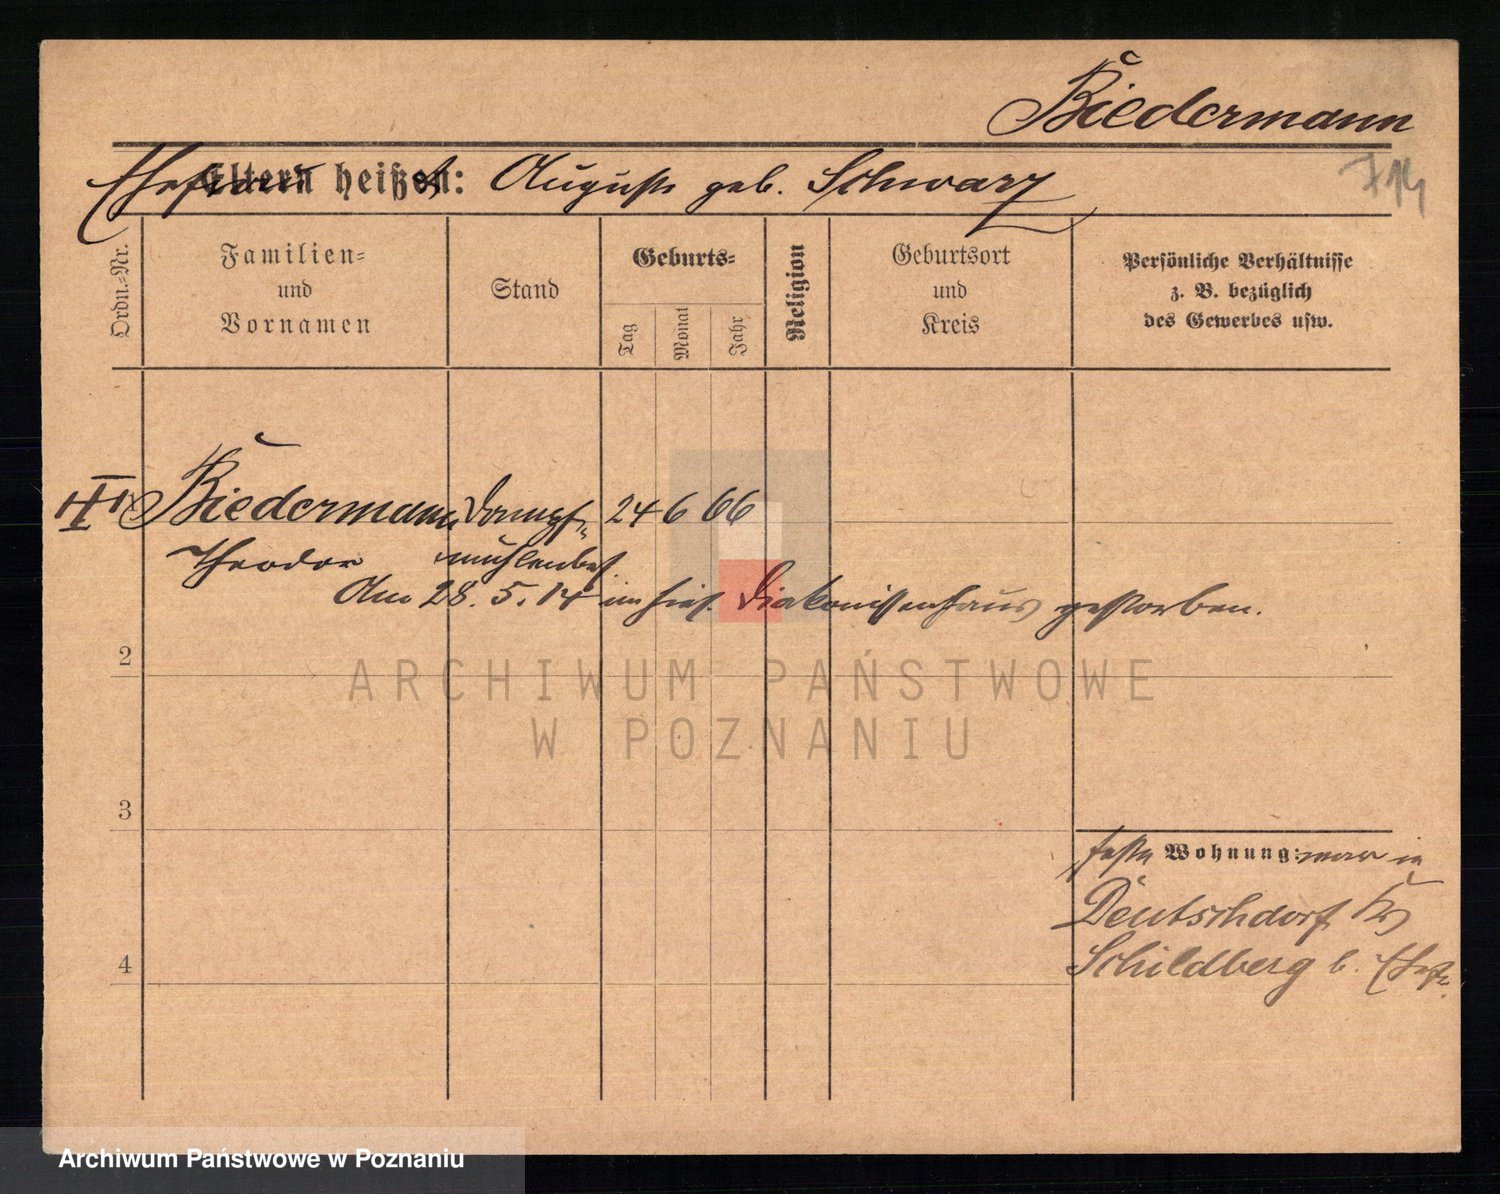 Biedermann
714
Ehefrau heißt: Auguste geb. Schwarz
Ordn.-Nr.
Familien-
und
Vornamen
Stand
Geburts-
Tag
Monat
Jahr
Religion
Geburtsort
und
Kreis
Persönliche Verhältnisse
z. B. bezüglich
des Gewerbes usw.
Biedermann Dampf- 24 6 66
Theodor mühlenbes.
Am 28. 5. 14 im hies. Diakonissenhaus gestorben.
2
ARCHIWUM PAŃSTWOWE
W POZNANIU
3
feste Wohnung: war in
Deutschdorf Kr
Schildberg b. Ehefr.
4
Archiwum Państwowe w Poznaniu